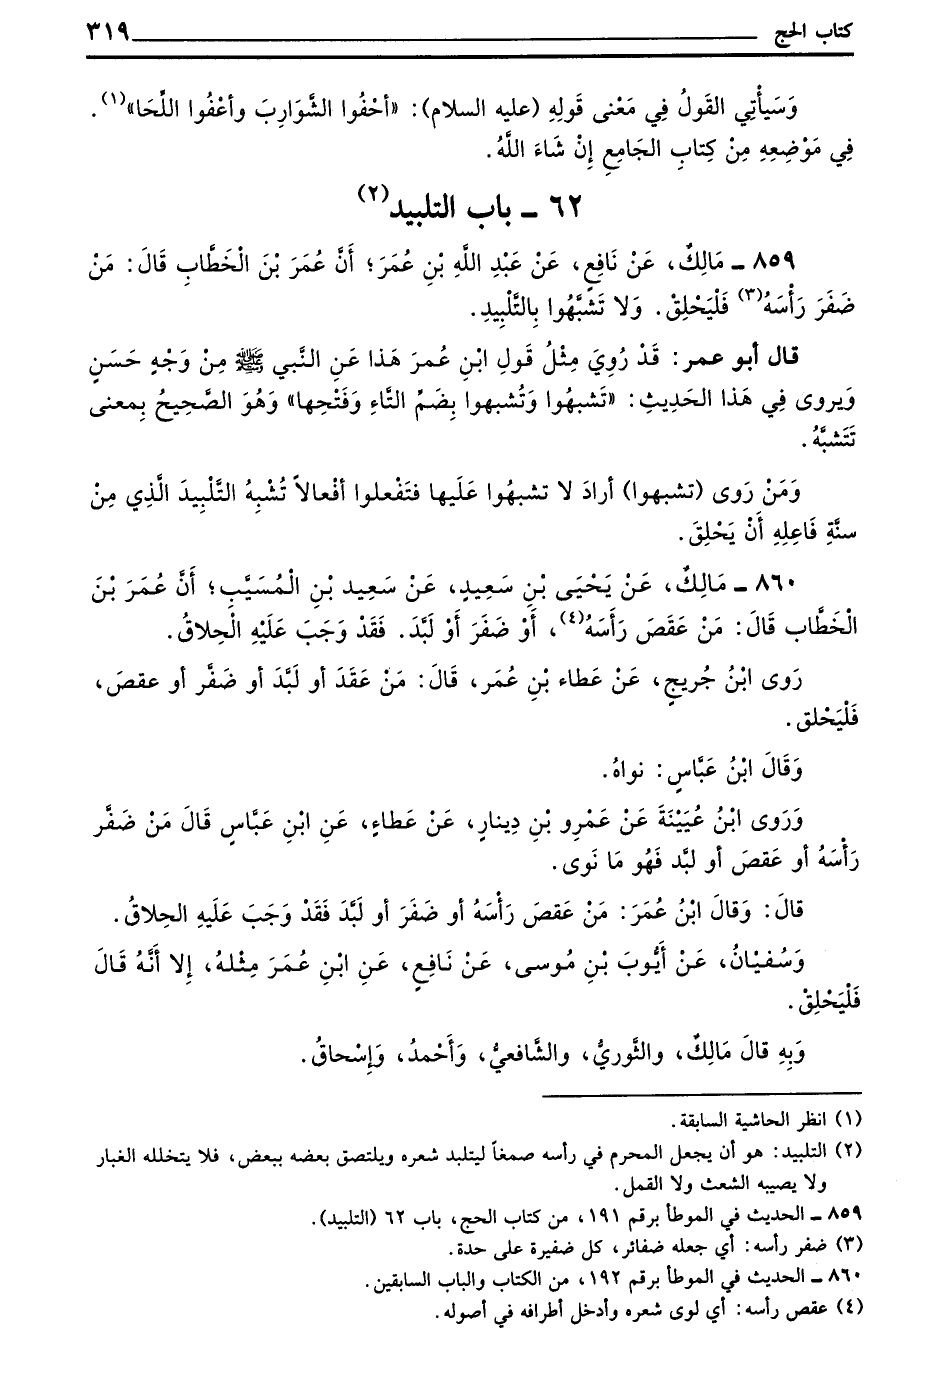 كتاب الحج ٣١٩
وَسَيأْتِي القَولُ فِي مَعْنى قَولِهِ (عليه السلام): «أحْفُوا الشَّوَارِبَ وأعْفُوا اللِّحَا»(١).
فِي مَوْضِعِهِ مِنْ كِتابِ الجَامِعِ إنْ شَاءَ اللَّهُ.
٦٢ ـ باب التلبيد(٢)
٨٥٩ ـ مَالِكٌ، عَنْ نَافِعٍ، عَنْ عَبْدِ اللَّهِ بْنِ عُمَرَ؛ أَنَّ عُمَرَ بْنَ الْخَطَّابِ قَالَ: مَنْ
ضَفَرَ رَأْسَهُ(٣) فَلْيَحْلِقْ. وَلا تَشَبَّهُوا بِالتَّلْبِيدِ.
قال أبو عمر: قَدْ رُوِيَ مِثْلُ قَولِ ابْنِ عُمرَ هَذا عَنِ النَّبي ﷺ مِنْ وَجْهٍ حَسَنٍ
وَيروى فِي هَذا الحَديثِ: «تَشبهُوا وَتُشبهوا بِضَمِّ التَّاءِ وَفَتْحِها» وَهُوَ الصَّحِيحُ بِمعنى
تَتَشبَّهُ.
وَمَنْ رَوى (تشبهوا) أرادَ لا تشبهُوا عَلَيها فتَفْعلوا أفْعالاً تُشْبِهُ التَّلْبِيدَ الَّذِي مِنْ
سنَّةِ فَاعِلِهِ أَنْ يَحْلِقَ.
٨٦٠ ـ مَالِكٌ، عَنْ يَحْيَى بْنِ سَعِيدٍ، عَنْ سَعِيد بْنِ الْمُسَيَّبِ؛ أَنَّ عُمَرَ بْنَ
الْخَطَّاب قَالَ: مَنْ عَقَصَ رَأَسَهُ(٤)، أَوْ ضَفَرَ أَوْ لَبَّدَ. فَقَدْ وَجَبَ عَلَيْهِ الْحِلاقُ.
رَوى ابْنُ جُريجٍ، عَنْ عَطاء بْنِ عُمَر، قَالَ: مَنْ عَقَدَ أو لَبَّدَ أو ضَفَّر أو عقصَ،
فَلْيَحْلق.
وَقَالَ ابْنُ عَبَّاسٍ: نواهُ.
وَرَوى ابْنُ عُيَيْنَةَ عَنْ عَمْرِو بْنِ دِينارٍ، عَنْ عَطاءٍ، عَنِ ابْنِ عَبَّاسٍ قَالَ مَنْ ضَفَّر
رَأْسَهُ أو عَقصَ أو لبَّد فَهُو مَا نَوى.
قالَ: وَقالَ ابْنُ عُمَرَ: مَنْ عَقصَ رَأْسَهُ أو ضَفَرَ أو لَبَّدَ فَقَدْ وَجَبَ عَلَيهِ الحِلاقُ.
وَسُفيْانُ، عَنْ أيُّوبَ بْنِ مُوسى، عَنْ نَافِعٍ، عَنِ ابْنِ عُمَرَ مِثلهُ، إلا أنَّهُ قَالَ
فَلْيَحْلِقْ.
وَبِهِ قالَ مَالِكٌ، والثَّوريُّ، والشَّافعيُّ، وَأَحْمدُ، وَإِسْحاقُ.
(١) انظر الحاشية السابقة.
(٢) التلبيد: هو أن يجعل المحرم في رأسه صمغاً ليتلبد شعره ويلتصق بعضه ببعض، فلا يتخلله الغبار
ولا يصيبه الشعث ولا القمل.
٨٥٩ ـ الحديث في الموطأ برقم ١٩١، من كتاب الحج، باب ٦٢ (التلبيد).
(٣) ضفر رأسه: أي جعله ضفائر، كل ضفيرة على حدة.
٨٦٠ ـ الحديث في الموطأ برقم ١٩٢، من الكتاب والباب السابقين.
(٤) عقص رأسه: أي لوى شعره وأدخل أطرافه في أصوله.